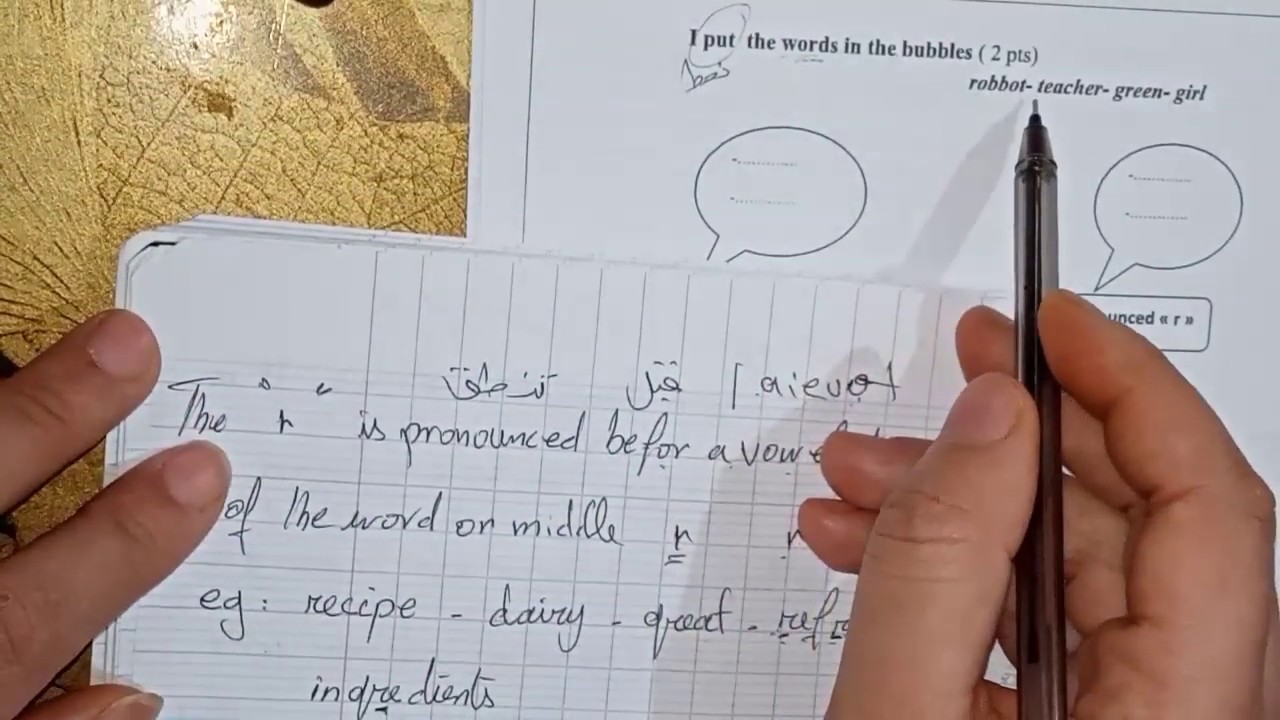 I put the words in the bubbles ( 2 pts)
robbot- teacher- green- girl
unced « r »
تنطق قبل [aieuo]
The "r" is pronounced befor a vow
of the word or middle r r
eg: recipe - dairy - great - refr
ingredients